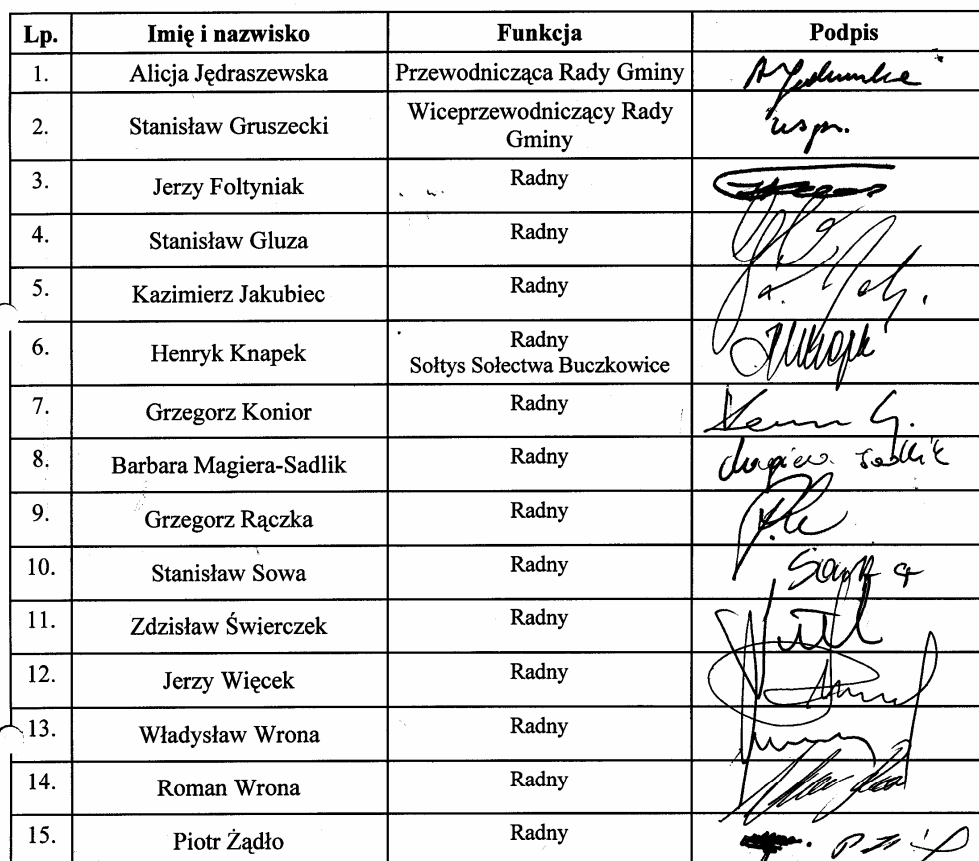 Lp. Imię i nazwisko Funkcja Podpis
1. Alicja Jędraszewska Przewodnicząca Rady Gminy
2. Stanisław Gruszecki Wiceprzewodniczący Rady Gminy uspr.
3. Jerzy Foltyniak Radny
4. Stanisław Gluza Radny
5. Kazimierz Jakubiec Radny
6. Henryk Knapek Radny
Sołtys Sołectwa Buczkowice
7. Grzegorz Konior Radny
8. Barbara Magiera-Sadlik Radny
9. Grzegorz Rączka Radny
10. Stanisław Sowa Radny
11. Zdzisław Świerczek Radny
12. Jerzy Więcek Radny
13. Władysław Wrona Radny
14. Roman Wrona Radny
15. Piotr Żądło Radny